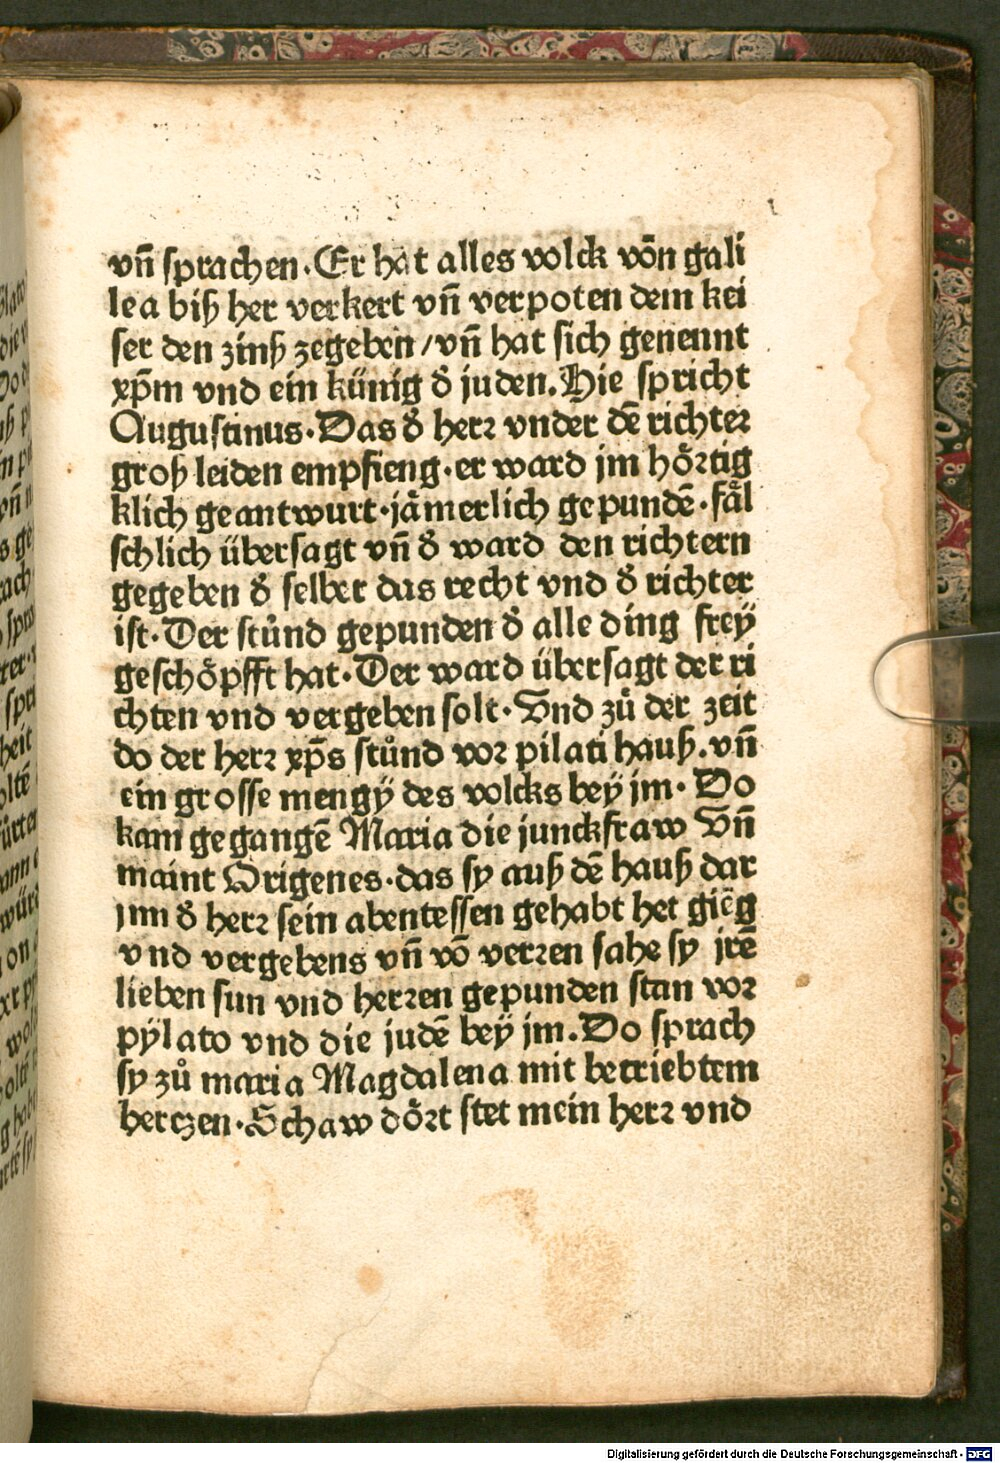 vñ sprachen·Er hat alles volck võn gali
lea biß her verkert vñ verpoten dem kei
ser den zinß zegeben/vñ hat sich genennt
xp̄m vnd ein künig d̕ juden. Hie spricht
Augustinus·Das d̕ herꝛ vnder dē richteꝛ
groß leiden empfieng·er ward jm hoͤꝛtig
klich geantwurt·jämerlich gepundē·faͤl
schlich übersagt vñ d̕ ward den richtern
gegeben d̕ selber das recht vnd d̕ richter
ist·Der stůnd gepunden d̕ alle ding freÿ
geschoͤpfft hat·Der ward übersagt der ri
chten vnd vergeben solt·Vnd zů der zeit
do der herꝛ xp̄s stůnd voꝛ pilati hauß. vñ
ein grosse mengÿ des volcks beÿ jm· Do
kam gegangē Maria die junckfraw Vñ
maint Origenes·das sy auß dē hauß dar
jnn d̕ herꝛ sein abentessen gehabt het giēg
vnd vergebens vñ võ verꝛen sahe sy jrē
lieben sun vnd herꝛen gepunden stan voꝛ
pÿlato vnd die judē beÿ jm. Do sprach
sy zů maria Magdalena mit betriebtem
hertzen·Schaw doͤꝛt stet mein herꝛ vnd
Digitalisierung gefördert durch die Deutsche Forschungsgemeinschaft - DFG